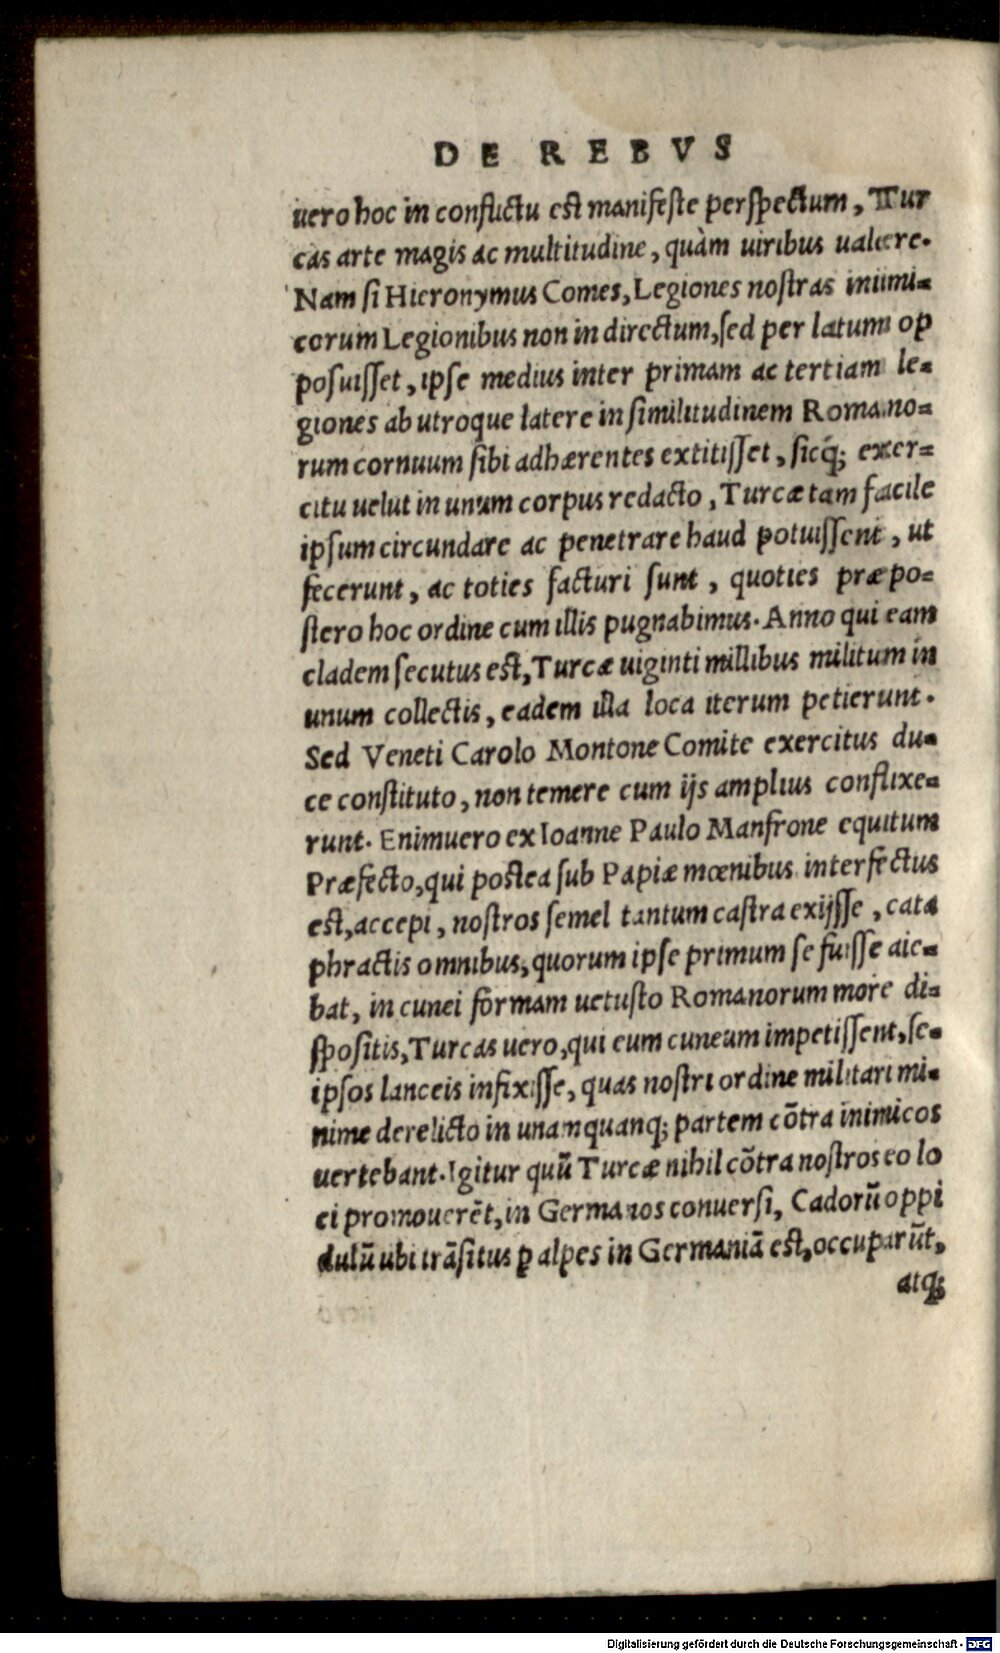 DE REBVS
uero hoc in conflictu est manifeste perspectum, Tur
cas arte magis ac multitudine, quàm uiribus ualere.
Nam si Hieronymus Comes, Legiones nostras inimi=
corum Legionibus non in directum, sed per latum op
posuisset, ipse medius inter primam ac tertiam le=
giones ab utroque latere in similitudinem Romano=
rum cornuum sibi adhærentes extitisset, sicq́; exer=
citu uelut in unum corpus redacto, Turcæ tam facile
ipsum circundare ac penetrare haud potuissent, ut
fecerunt, ac toties facturi sunt, quoties præpo=
stero hoc ordine cum illis pugnabimus. Anno qui eam
cladem secutus est, Turcæ uiginti millibus militum in
unum collectis, eadem illa loca iterum petierunt.
Sed Veneti Carolo Montone Comite exercitus du=
ce constituto, non temere cum ijs amplius conflixe=
runt. Enimuero ex Ioanne Paulo Manfrone equitum
Præfecto, qui postea sub Papiæ mœnibus interfectus
est, accepi, nostros semel tantum castra exijsse, cata
phractis omnibus, quorum ipse primum se fuisse aie=
bat, in cunei formam uetusto Romanorum more di=
spositis, Turcas uero, qui eum cuneum impetissent, se=
ipsos lanceis infixisse, quas nostri ordine militari mi=
nime derelicto in unamquanq; partem cōtra inimicos
uertebant. Igitur quū Turcæ nihil cōtra nostros eo lo
ci promouerēt, in Germanos conuersi, Cadorū oppi
dulū ubi trāsitus ꝑ alpes in Germaniā est, occuparūt,
atq;
Digitalisierung gefördert durch die Deutsche Forschungsgemeinschaft - DFG